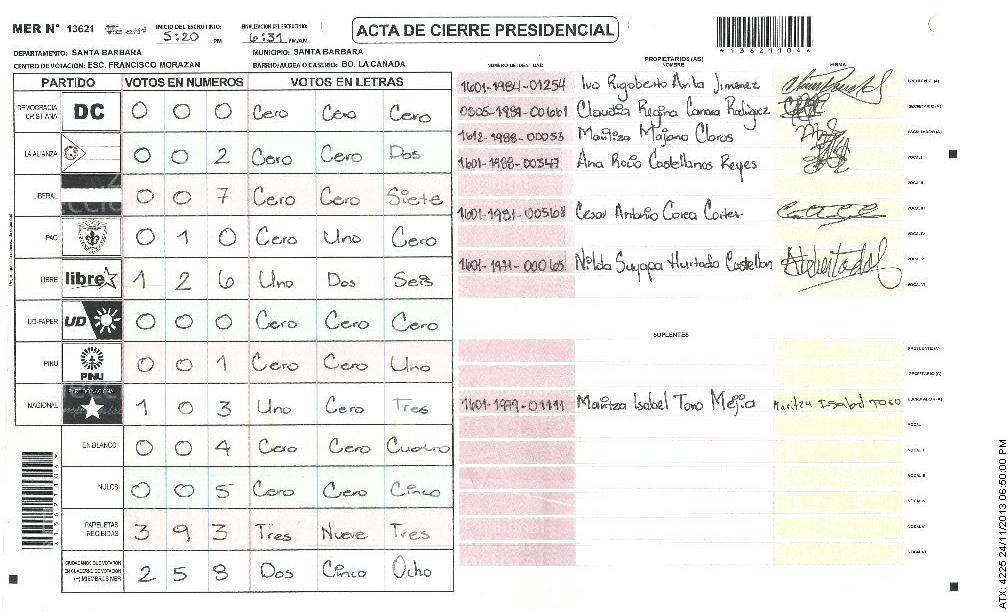 MER N° 13621 INICIO DEL ESCRUTINIO: 5:20 PM FINALIZACION DEL ESCRUTINIO: 6:31 PM/AM
ACTA DE CIERRE PRESIDENCIAL
13621104
DEPARTAMENTO: SANTA BARBARA MUNICIPIO: SANTA BARBARA
CENTRO DE VOTACION: ESC. FRANCISCO MORAZAN BARRIO/ALDEA O CASERIO: BO. LA CAÑADA
PARTIDO VOTOS EN NUMEROS VOTOS EN LETRAS
DEMOCRACIA CRISTIANA DC 0 0 0 Cero Cero Cero
LA ALIANZA 0 0 2 Cero Cero Dos
LIBERAL 0 0 7 Cero Cero Siete
PAC 0 1 0 Cero Uno Cero
LIBRE libre 1 2 6 Uno Dos Seis
UD-FAPER UD 0 0 0 Cero Cero Cero
PINU PINU 0 0 1 Cero Cero Uno
NACIONAL 1 0 3 Uno Cero Tres
EN BLANCO 0 0 4 Cero Cero Cuatro
NULOS 0 0 5 Cero Cero Cinco
PAPELETAS RECIBIDAS 3 9 3 Tres Nueve Tres
CIUDADANOS QUE VOTARON EN CUADERNO DE VOTACION (+) MIEMBROS MER 2 5 8 Dos Cinco Ocho
PROPIETARIOS (AS)
NUMERO DE IDENTIDAD NOMBRE FIRMA
1601-1984-01254 Ivo Rigoberto Avila Jimenez PRESIDENTE (A)
Claudia Regina SECRETARIO (A)
1612-1988-00053 Maritza Claros ESCRUTADOR (A)
1601-1988-00347 Ana Rocio Castellanos Reyes VOCAL I
VOCAL II
1601-1981-00568 Cesar Antonio VOCAL III
VOCAL IV
1601-1971-00065 Nilda Suyapa Hurtado Castellon VOCAL V
VOCAL VI
SUPLENTES
PRESIDENTE (A)
SECRETARIO (A)
Maritza Isabel Toro Mejia Maritza Isabel Toro ESCRUTADOR (A)
VOCAL I
VOCAL II
VOCAL III
VOCAL IV
VOCAL V
VOCAL VI
ATX: 4225 24/11/2013 06:50:00 PM